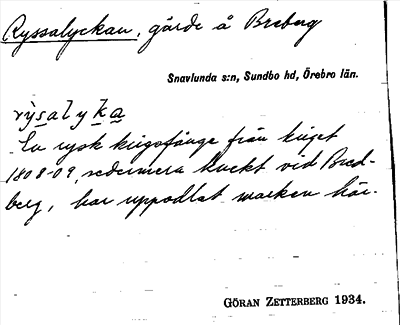 Ryssalyckan, gärde å Breberg
Snavlunda s:n, Sundbo hd, Örebro län.
rỳsalyka
En rysk krigsfånge från kriget
1808-09, sedermera knekt vid Bred-
berg, har uppodlat marken här.
GÖRAN ZETTERBERG 1934.